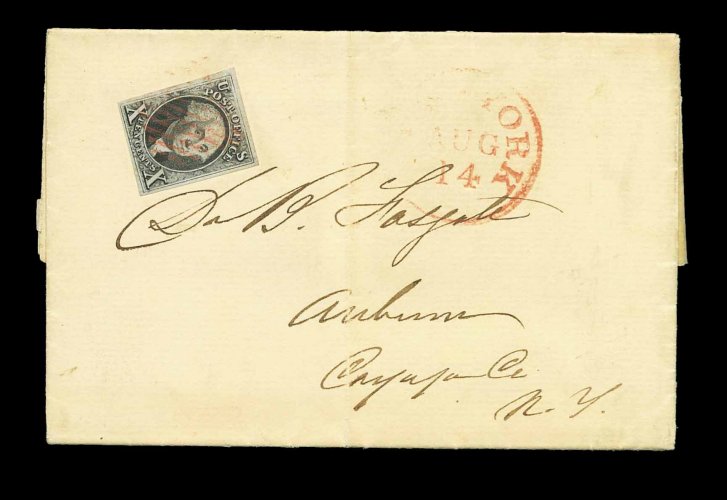 U S
POST OFFICE
X TEN CENTS X
YORK
AUG
14
Dr. B. Fosgate
Auburn
Cayuga Co.
N. Y.